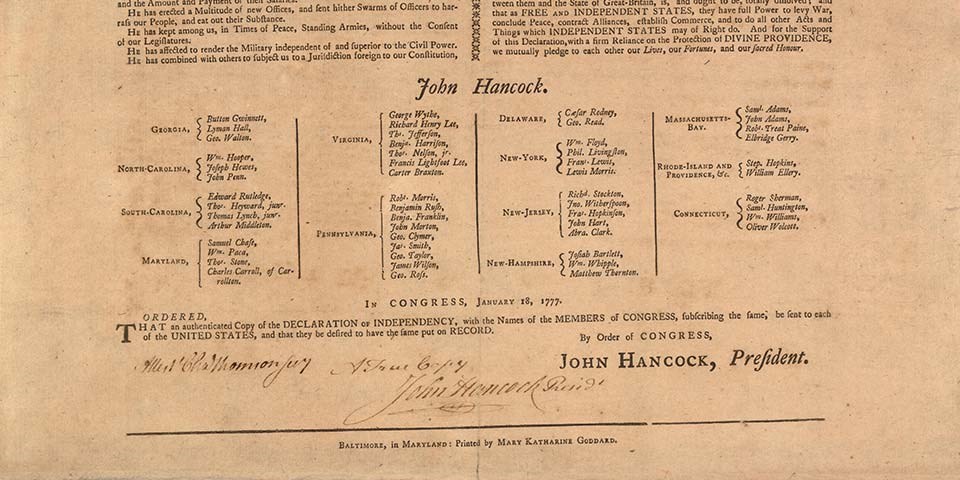 and the Amount and Payment of their Salaries.
HE has erected a Multitude of new Offices, and sent hither Swarms of Officers to har-
rass our People, and eat out their Substance.
HE has kept among us, in Times of Peace, Standing Armies, without the Consent
of our Legislatures.
HE has affected to render the Military independent of and superior to the Civil Power.
HE has combined with others to subject us to a Jurisdiction foreign to our Constitution,
tween them and the State of Great-Britain, is, and ought to be, totally dissolved; and
that as FREE AND INDEPENDENT STATES, they have full Power to levy War,
conclude Peace, contract Alliances, establish Commerce, and to do all other Acts and
Things which INDEPENDENT STATES may of Right do. And for the Support
of this Declaration, with a firm Reliance on the Protection of DIVINE PROVIDENCE,
we mutually pledge to each other our Lives, our Fortunes, and our sacred Honour.
John Hancock.
GEORGIA,
Button Gwinnett,
Lyman Hall,
Geo. Walton.
NORTH-CAROLINA,
Wm. Hooper,
Joseph Hewes,
John Penn.
SOUTH-CAROLINA,
Edward Rutledge,
Thos. Heyward, junr.
Thomas Lynch, junr.
Arthur Middleton.
MARYLAND,
Samuel Chase,
Wm. Paca,
Thos. Stone,
Charles Carroll, of Car-
rollton.
VIRGINIA,
George Wythe,
Richard Henry Lee,
Ths. Jefferson,
Benja. Harrison,
Thos. Nelson, jr.
Francis Lightfoot Lee,
Carter Braxton.
PENNSYLVANIA,
Robt. Morris,
Benjamin Rush,
Benja. Franklin,
John Morton,
Geo. Clymer,
Jas. Smith,
Geo. Taylor,
James Wilson,
Geo. Ross.
DELAWARE,
Cæsar Rodney,
Geo. Read.
NEW-YORK,
Wm. Floyd,
Phil. Livingston,
Frans. Lewis,
Lewis Morris.
NEW-JERSEY,
Richd. Stockton,
Jno. Witherspoon,
Fras. Hopkinson,
John Hart,
Abra. Clark.
NEW-HAMPSHIRE,
Josiah Bartlett,
Wm. Whipple,
Matthew Thornton.
MASSACHUSETTS-
BAY.
Saml. Adams,
John Adams,
Robt. Treat Paine,
Elbridge Gerry.
RHODE-ISLAND AND
PROVIDENCE, &c.
Step. Hopkins,
William Ellery.
CONNECTICUT,
Roger Sherman,
Saml. Huntington,
Wm. Williams,
Oliver Wolcott.
IN CONGRESS, JANUARY 18, 1777.
ORDERED,
THAT an authenticated Copy of the DECLARATION OF INDEPENDENCY, with the Names of the MEMBERS OF CONGRESS, subscribing the same, be sent to each
of the UNITED STATES, and that they be desired to have the same put on RECORD.
By Order of CONGRESS,
JOHN HANCOCK, President.
Attest Cha Thomson secy
A True Copy
John Hancock Presidt
BALTIMORE, in MARYLAND: Printed by MARY KATHARINE GODDARD.